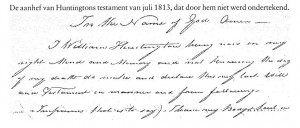 De aanhef van Huntingtons testament van juli 1813, dat door hem niet werd ondertekend.
In the Name of God Amen
I William Huntington being now in my
right Mind and Memory and knowing the day
of my death do make and declare this my last Will
and Testament in manner and form following
Imprimis (that is to say)